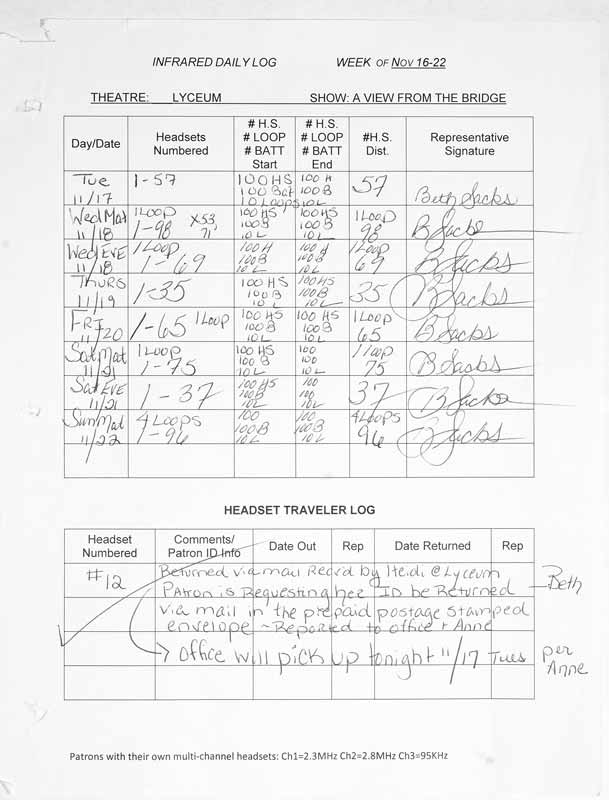 INFRARED DAILY LOG WEEK OF NOV 16-22
THEATRE: LYCEUM SHOW: A VIEW FROM THE BRIDGE
Day/Date Headsets Numbered # H.S. # LOOP # BATT Start # H.S. # LOOP # BATT End #H.S. Dist. Representative Signature
Tue 11/17 1-57 100HS 100Bat 10 Loops 100 H 100B 10L 57 Beth Sacks
Wed Mat 11/18 1 Loop 1-98 x53, 71 100 HS 100B 10L 100 HS 100B 10L 1 Loop 98 B Sacks
Wed EVE 11/18 1 Loop 1-69 100 H 100B 10L 100 H 100B 10L 1 Loop 69 B Sacks
THURS 11/19 1-35 100 HS 100B 10L 100HS 100B 10L 35 B Sacks
FRI 11/20 1-65 1 Loop 100 HS 100B 10L 100 HS 100B 10L 1 Loop 65 B Sacks
Sat Mat 11/21 1 Loop 1-75 100 HS 100B 10L 100 100B 10L 1 Loop 75 B Sacks
Sat EVE 11/21 1-37 100 HS 100B 10L 100 100B 10L 37 B Sacks
Sun Mat 11/22 4 Loops 1-96 100 100B 10L 100 100B 10L 4 Loops 96 B Sacks
HEADSET TRAVELER LOG
Headset Numbered Comments/ Patron ID Info Date Out Rep Date Returned Rep
#12 Returned via mail Rec'd by Heidi @ Lyceum
Patron is Requesting her ID be Returned - Beth
via mail in the prepaid postage stamped
envelope - Reported to office + Anne
office will pick up tonight 11/17 Tues per Anne
Patrons with their own multi-channel headsets: Ch1=2.3MHz Ch2=2.8MHz Ch3=95KHz